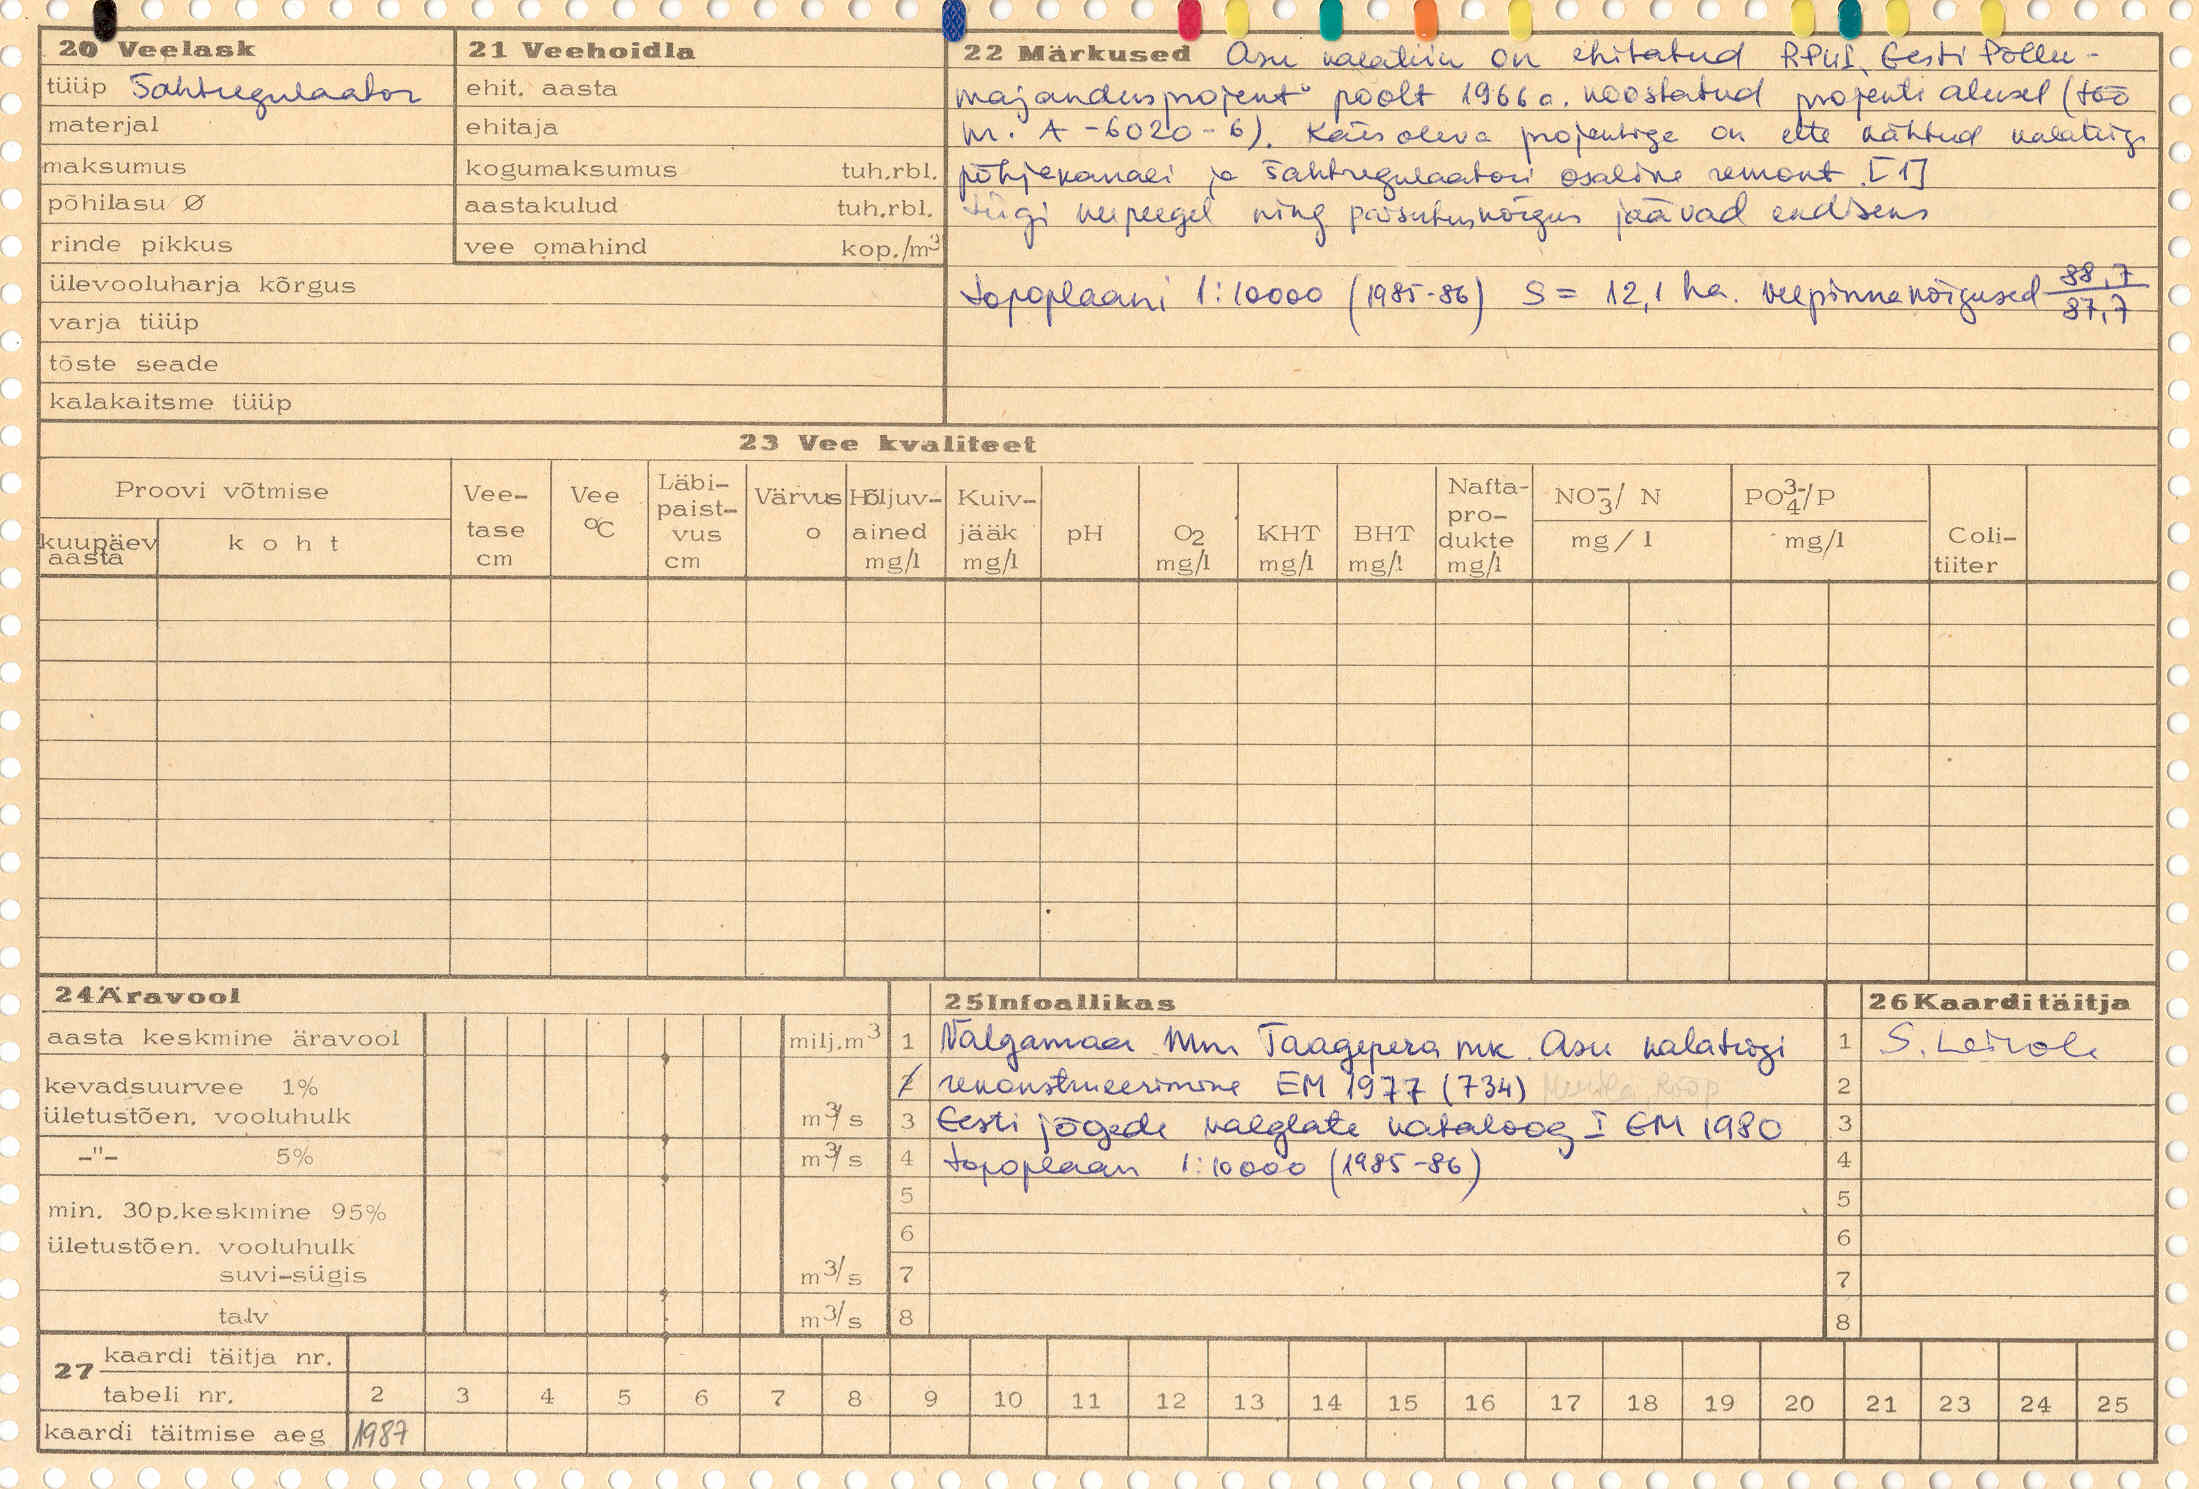 20 Veelask
tüüp Šahtregulaator
materjal
maksumus
põhilasu Ø
rinde pikkus
ülevooluharja kõrgus
varja tüüp
tõste seade
kalakaitsme tüüp
21 Veehoidla
ehit. aasta
ehitaja
kogumaksumus tuh.rbl.
aastakulud tuh.rbl.
vee omahind kop./m³
22 Märkused Asu kalatiik on ehitatud RPUI "Eesti Põllu-
majandusprojekt" poolt 1966 a. koostatud projekti alusel (töö
nr. A-6020-6). Käesoleva projektiga on ette nähtud kalatiigi
põhjakanali ja šahtregulaatori osaline remont. [1]
tiigi veepeegel ning paisutuskõrgus jäävad endiseks
topoplaani 1:10000 (1985-86) S = 12,1 ha. veepinna kõrgused 88,7
87,7
23 Vee kvaliteet
Proovi võtmise
kuupäev aasta
koht
Vee-tase cm
Vee °C
Läbi-paist-vus cm
Värvus o
Hõljuv-ained mg/l
Kuiv-jääk mg/l
pH
O₂ mg/l
KHT mg/l
BHT mg/l
Nafta-pro-dukte mg/l
NO₃⁻/N mg/l
PO₄³⁻/P mg/l
Coli-tiiter
24 Äravool
aasta keskmine äravool milj.m³
kevadsuurvee 1%
ületustõen. vooluhulk m³/s
-"- 5% m³/s
min. 30p.keskmine 95%
ületustõen. vooluhulk
suvi-sügis m³/s
talv m³/s
25 Infoallikas
1 Valgamaa Mm Taagepera mk. Asu kalatiigi
2 rekonstrueerimine EM 1977 (734)
3 Eesti jõgede valglate kataloog I EM 1980
4 topoplaan 1:10000 (1985-86)
5
6
7
8
26 Kaarditäitja
1 S. Leivole
2
3
4
5
6
7
8
27 kaardi täitja nr.
tabeli nr. 2 3 4 5 6 7 8 9 10 11 12 13 14 15 16 17 18 19 20 21 23 24 25
kaardi täitmise aeg 1987